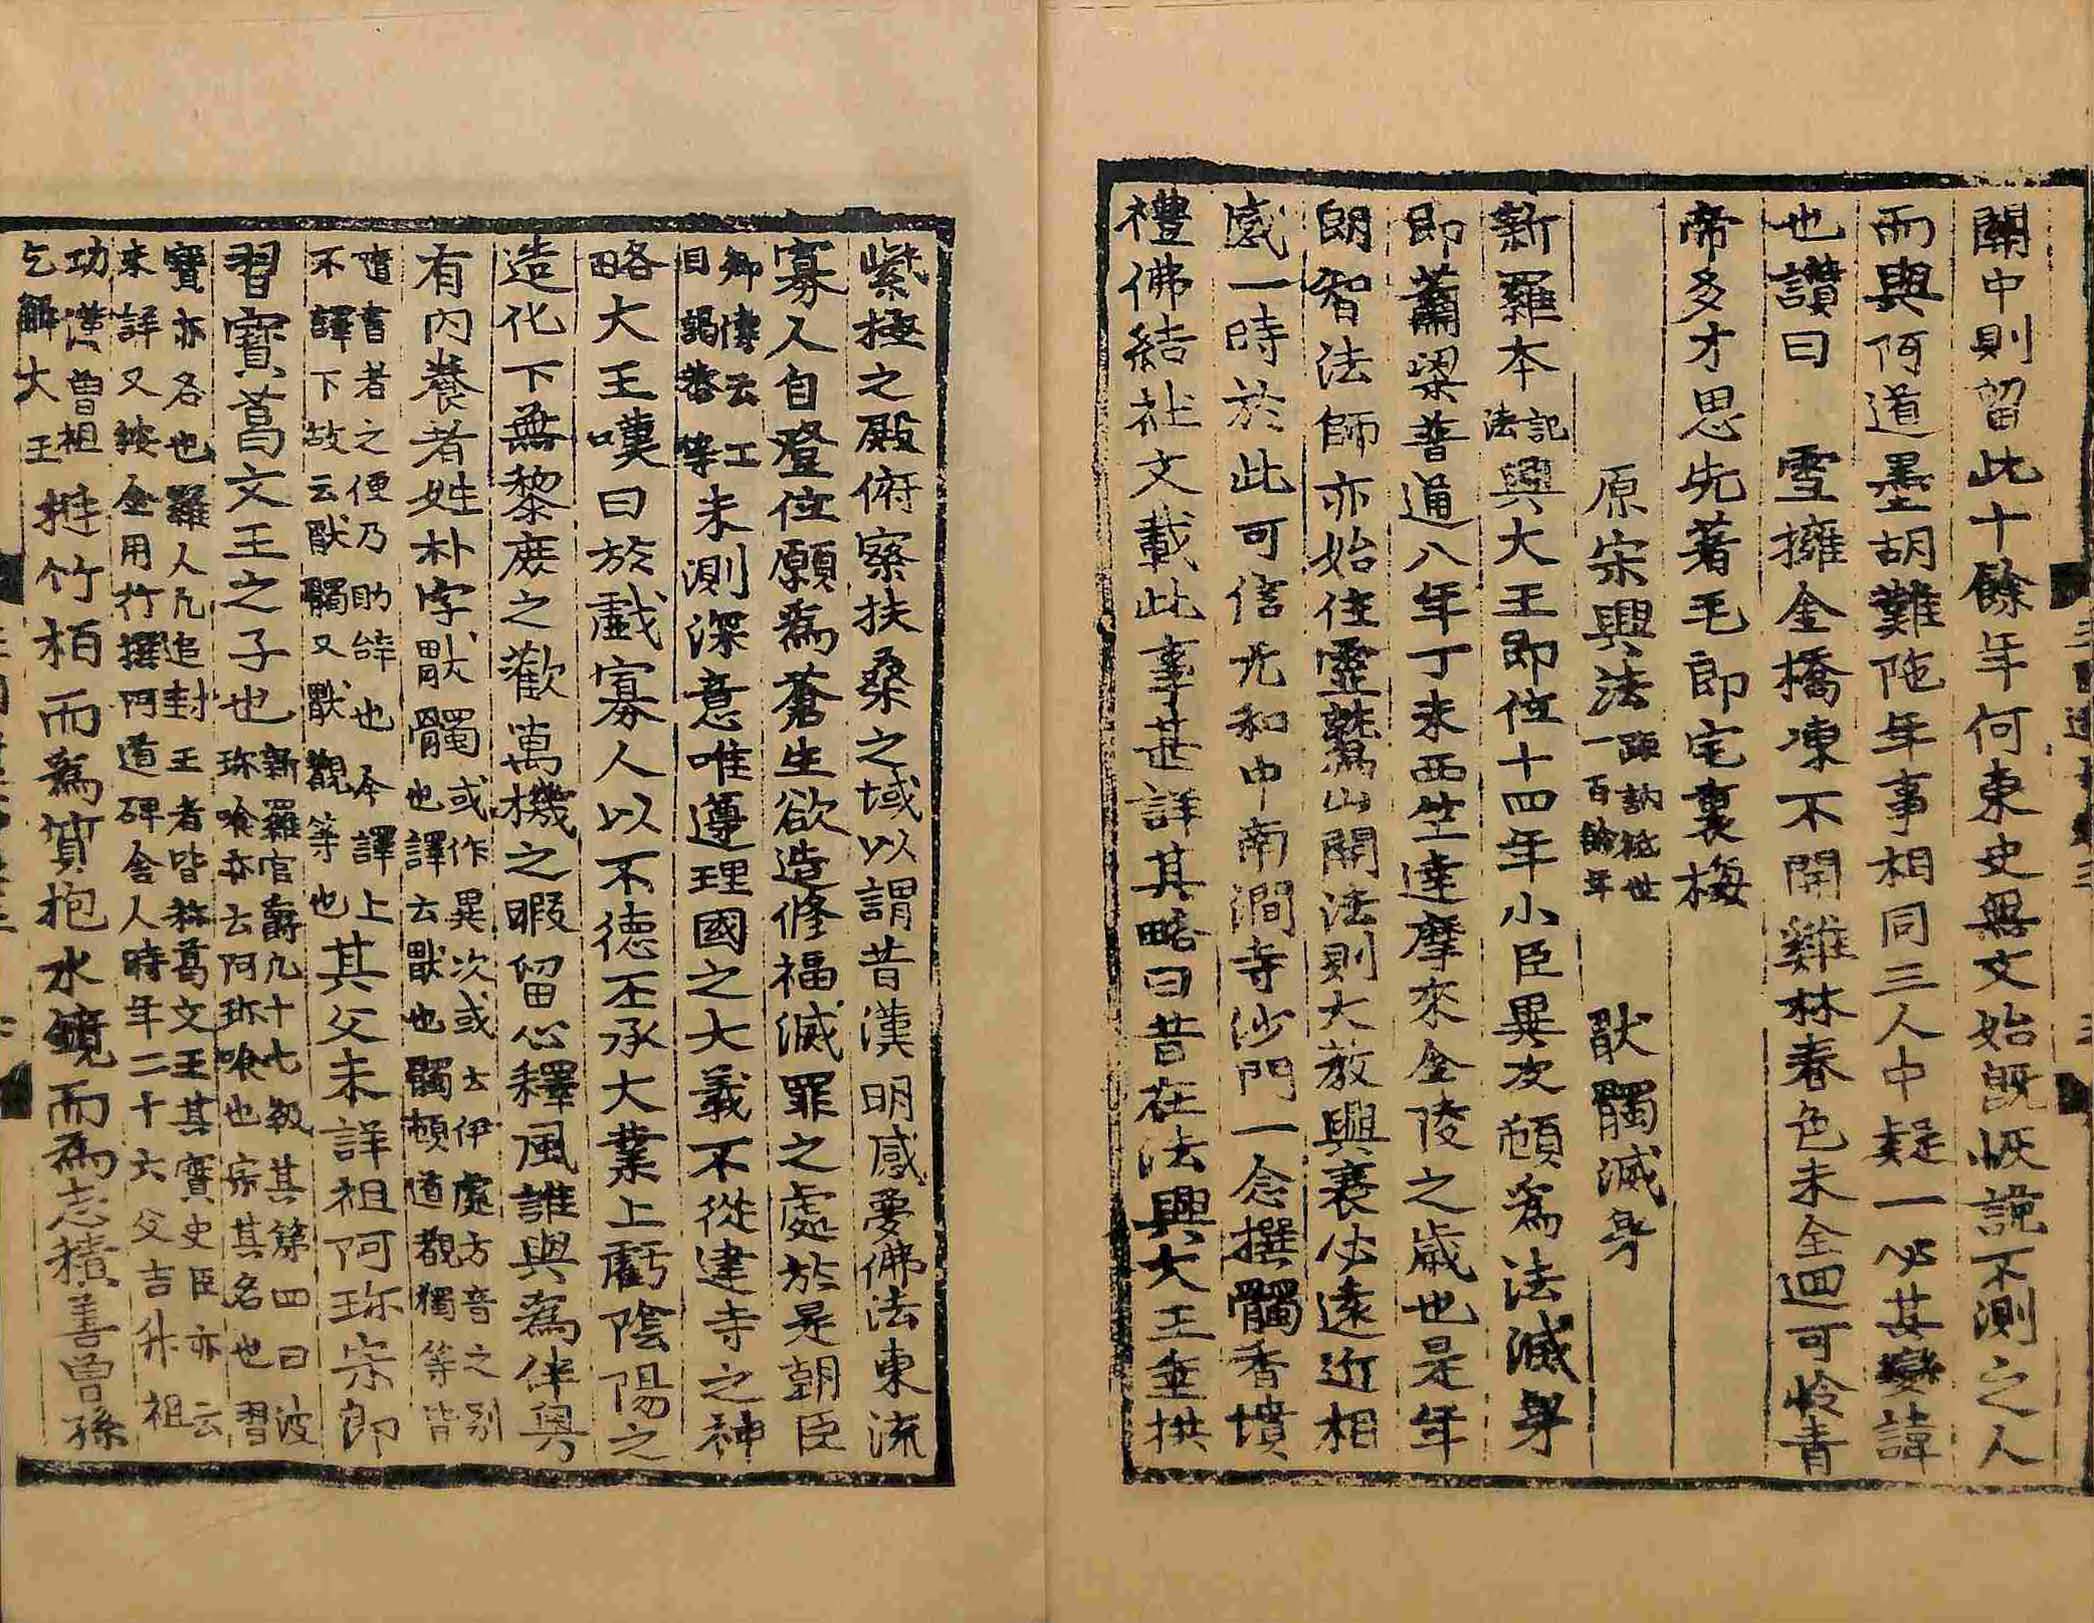 關中則留此十餘年何東史無文始旣恢詭不測之人
而與阿道墨胡難陁年事相同三人中疑一必其變諱
也讃曰 雪擁金橋凍不開雞林春色未全迴可怜青
帝多才思先著毛郎宅裏梅
原宗興法距訥祗世一百餘年 猒髑滅身
新羅本記法興大王即位十四年小臣異次頓爲法滅身
即蕭梁普通八年丁未西竺達摩來金陵之歲也是年
朗智法師亦始住靈鷲山開法則大教興衰必遠近相
感一時於此可信元和中南澗寺沙門一念撰髑香墳
禮佛結社文載此事甚詳其略曰昔在法興大王垂拱
紫極之殿俯察扶桑之域以謂昔漢明感夢佛法東流
寡人自登位願爲蒼生欲造修福滅罪之處於是朝臣
鄉傳云工目謁恭等未測深意唯遵理國之大義不從建寺之神
略大王嘆曰於戱寡人以不德丕承大業上虧陰陽之
造化下無黎庶之歡萬機之暇留心釋風誰與爲伴粤
有內養者姓朴字猒髑或作異次或云伊處方音之别也譯云猒也髑頓道覩獨等皆
隨書者之便乃助辝也今譯上不譯下故云猒髑又猒覩等也其父未詳祖阿珎宗郎
習寶葛文王之子也新羅官爵凡十七級其第四曰波珎喰亦云阿珎喰也宗其名也習
寶亦名也羅人凡追封王者皆稱葛文王其實史臣亦云未詳又按金用行撰阿道碑舍人時年二十六父吉升祖
功漢曾祖乞解大王挺竹栢而爲質抱水鏡而爲志積善曾孫